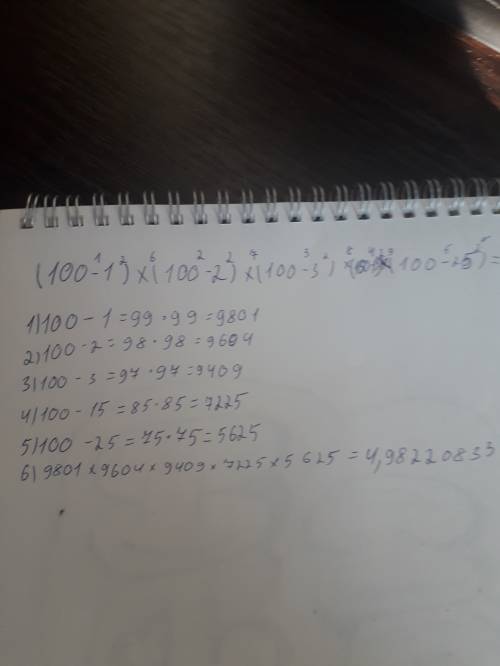 (100-1²)×(100-2²)×(100-3²) (100-25²)=
1) 100 - 1 = 99 · 99 = 9801
2) 100 - 2 = 98 · 98 = 9604
3) 100 - 3 = 97 · 97 = 9409
4) 100 - 15 = 85 · 85 = 7225
5) 100 - 25 = 75 · 75 = 5625
6) 9801 × 9604 × 9409 × 7225 × 5625 = 4,98220833